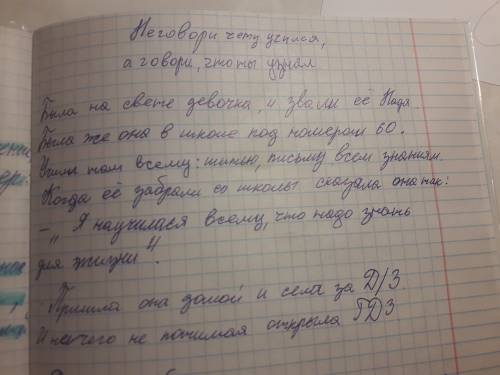 Неговори чему учился,
а говори, что ты узнал
Была на свете девочка, и звали её Надя
Была же она в школе под номером 60.
Учили там всему: шитью, письму всем знаниям
Когда её забрали со школы сказала она так:
- „Я научилася всему, что надо знать
для жизни".
Пришла она домой и села за Д/З
И ничего не понимая открыла ГДЗ